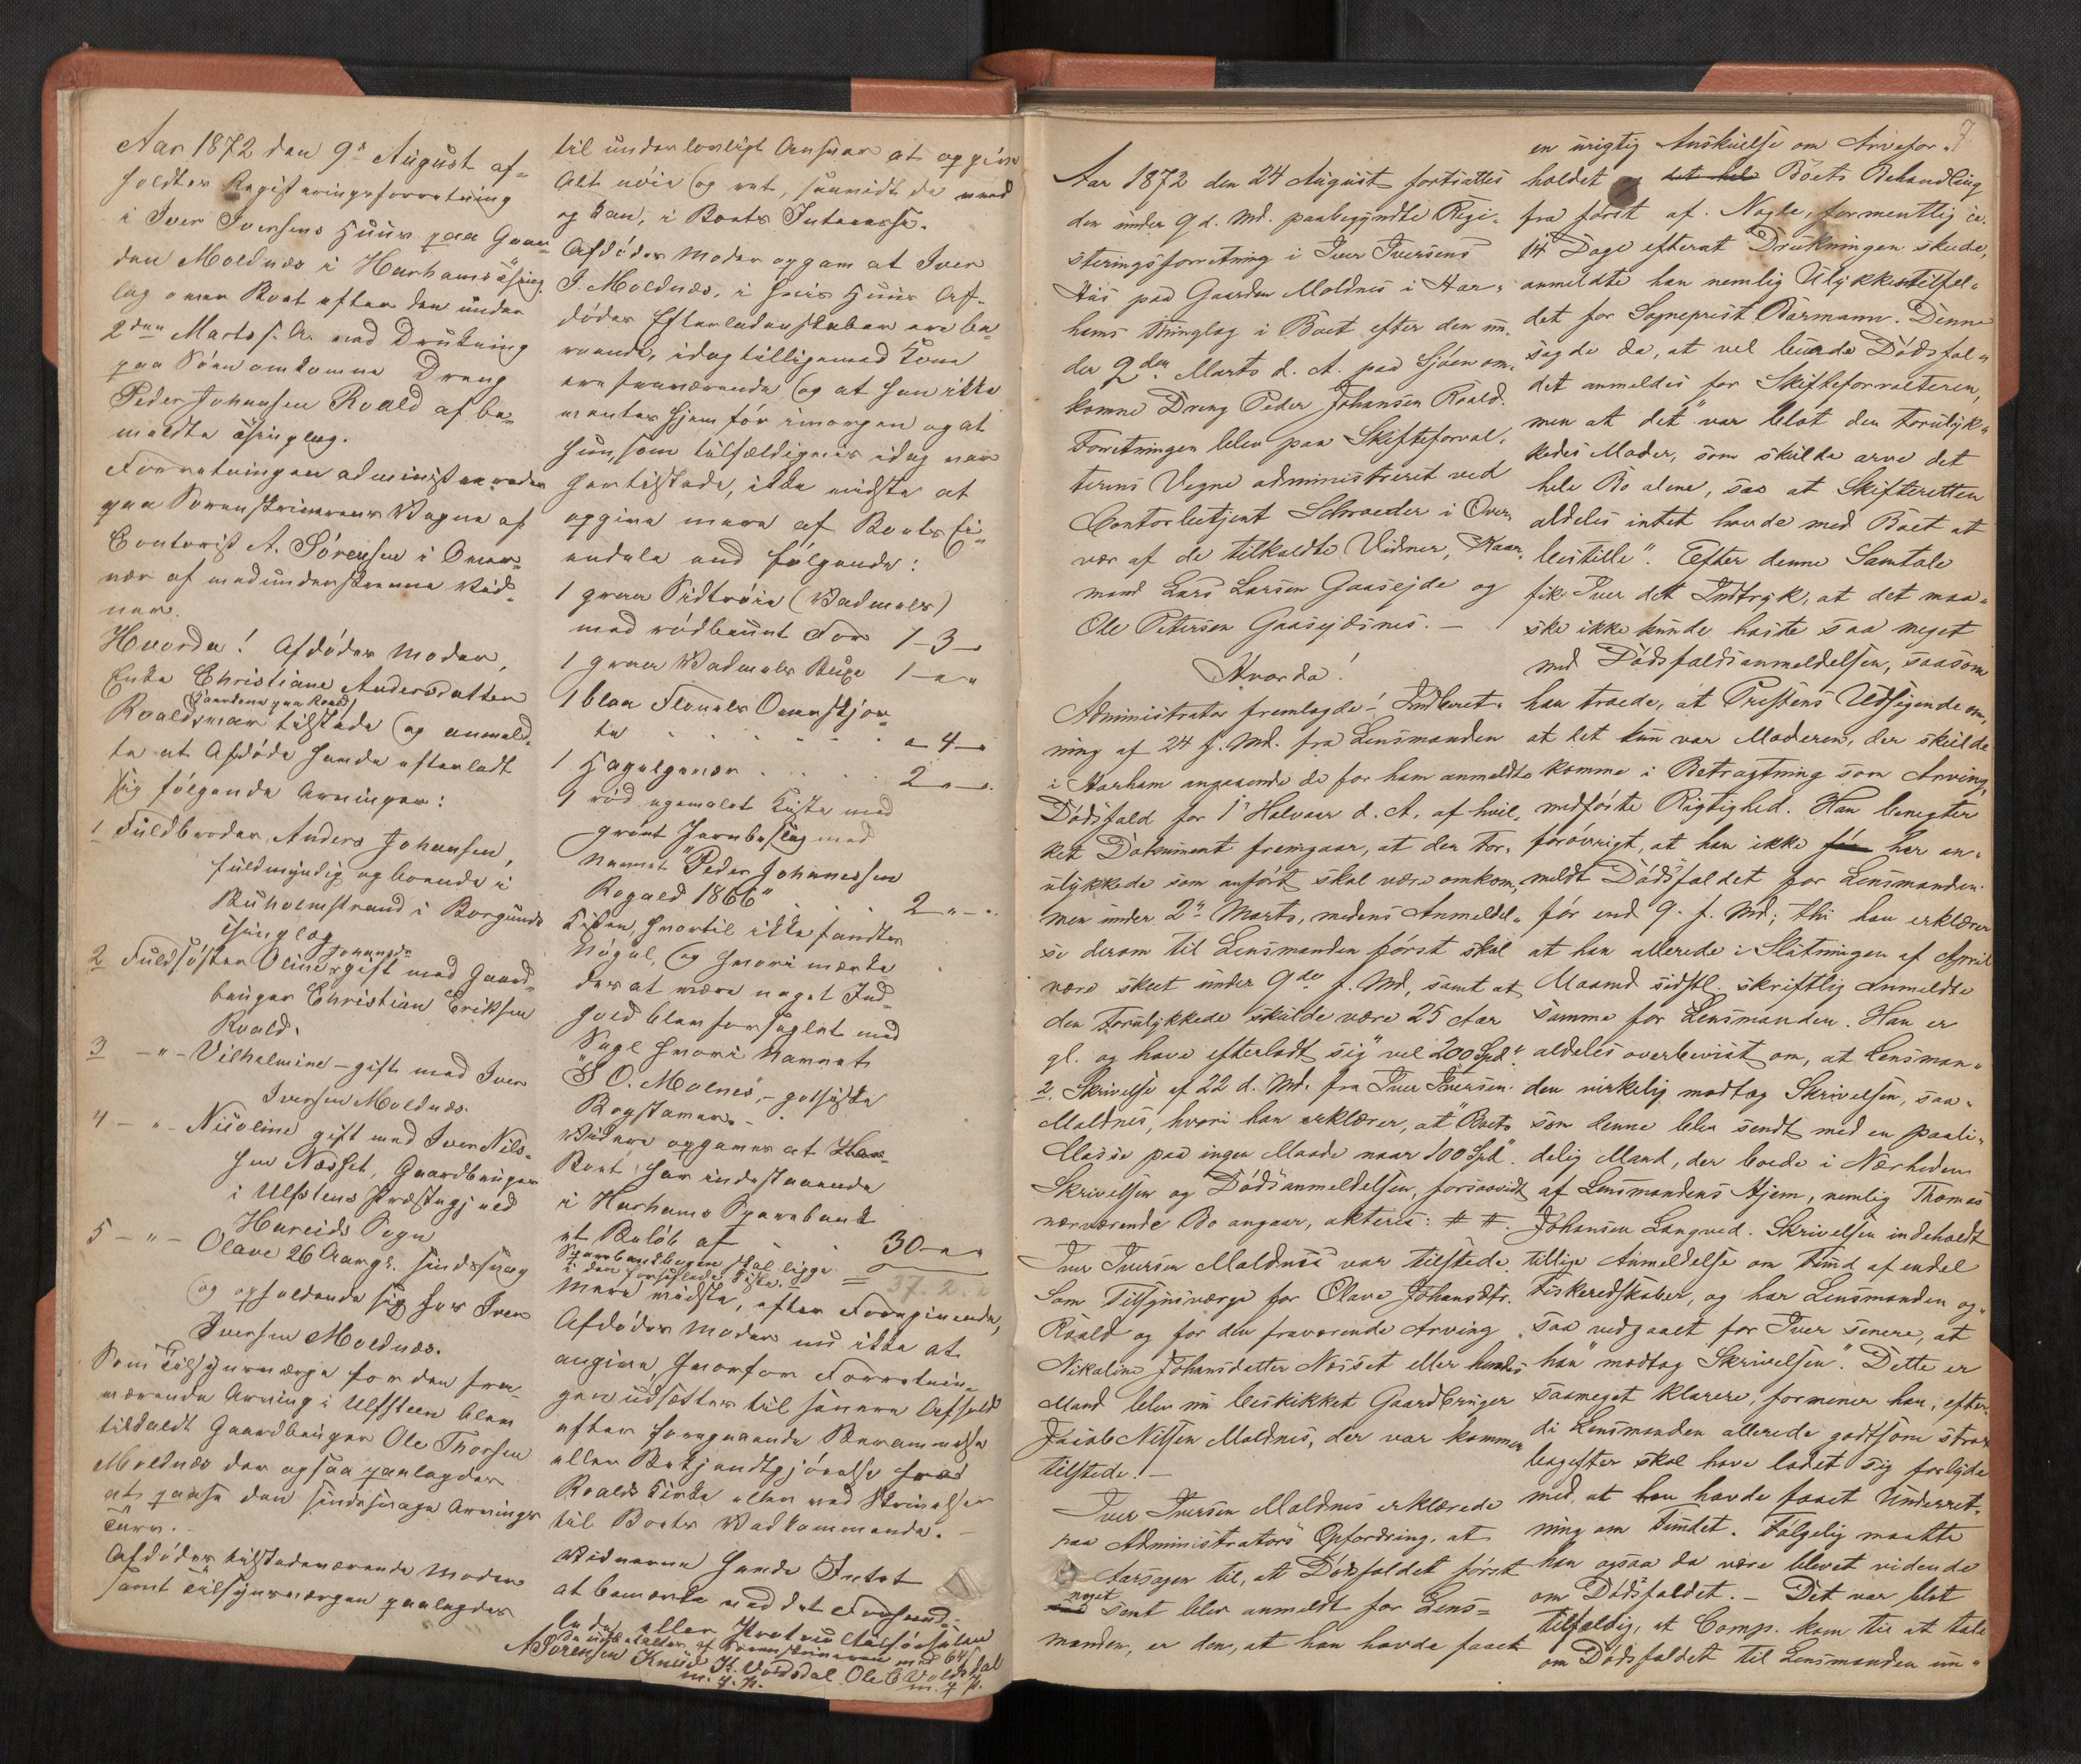 Aar 1872 den 9de August af-
holdtes Registreringsforretning
i Iver Iversens Huus paa Gaar-
den Moldnæs i Harhams Thing-
lag over Boet efter den under
2den Marts s. A. ved Drukning
paa Søen omkomne Dreng
Peder Johansen Roald af be-
meldte Thinglag.
Forretningen administreredes
paa Sorenskriverens Vegne af
Contorist A. Sørensen i Over-
vær af medunderskrevne Vid-
ner.
Hvorda! Afdødes Moder,
Enke Christiane Andersdatter
(Kaarkone paa Roald)
Roald, var tilstede og anmeld-
te at Afdøde havde efterladt
sig følgende Arvinger:
1 Fuldbroder Anders Johansen,
fuldmyndig og boende i
Buholmstrand i Borgunds
Thinglag
2 Fuldsøster Oline Johansd. gift med Gaard-
bruger Christian Eriksen
Roald.
3 - " - Vilhelmine - gift med Iver
Iversen Moldnæs.
4 - " - Nicoline gift med Iver Nils-
sen Næsset, Gaardbruger
i Ulfstens Præstegjeld
Hareids Sogn
5 - " - Olave 26 Aar gl. sindssvag
og opholdende sig hos Iver
Iversen Moldnæs.
Som Tilsynsværge for den fra-
værende Arving i Ulfsteen blev
tilkaldt Gaardbruger Ole Thorsen
Moldnæs der ogsaa paalagdes
at paase den sindssvage Arvings
Tarv.
Afdødes tilstedeværende Moder
samt Tilsynsværgen paalagdes
til under lovligt Ansvar at opgive
Alt nøie og ret, saavidt de veed
og kan, i Boets Interesse.
Afdødes Moder opgav at Iver
I. Moldnæs, i hvis Huus Af-
dødes Efterladenskaber ere be-
roende, idag tilligemed Kone
ere fraværende og at han ikke
ventes hjem før imorgen og at
hun, som tilfældigviis idag var
her tilstede, ikke vidste at
opgive mere af Boets Ei-
endele end følgende:
1 graa Sidtrøie (Vadmels)
med rødbrunt Foer 1-3-
1 graa Vadmels Buxe 1-"-"
1 blaa Flonels Overskjor-
te . . . . . . "-4-"
1 Hagelgevær . . . . 2-"-"
1 rød ugemalet Kiste med
grønt Jernbeslag med
Navnet "Peder Johannessen
Rogald 1866" . . . 2-"-"
Kisten, hvortil ikke fandtes
Nøgel, og hvori mærke-
des at være noget Ind-
hold blev forseglet med
Segl hvori Navnet
"I O. Molnes" - gothiske
Bogstaver. -
Videre opgaves at
Boet har indestaaende
i Harhams Sparebank
et Beløb af . . 30-"-"
Sparebankbogen skal ligge
i den forseglede Kiste. = 37.2.
Mere vidste, efter Foregivende,
Afdødes Moder nu ikke at
angive, hvorfor Forretnin-
gen udsættes til senere Afhold
efter foregaaende Berammelse
eller Bekjendtgjørelse fra
Roalds Kirke eller ved Skrivelser
til Boets Vedkommende. -
Vidnerne havde Intet
at bemærke ved det Fremfund-
ne eller
A Sørensen Knud K. Voldsdal Ole O Voldsdal
m. f. P. m. f. P.
7
Aar 1872 den 24 August fortsattes
den under 9 d. Md. paabegyndte Regi-
streringsforretning i Iver Iversens
Hus paa Gaarden Moldnes i Har-
hams Thinglag i Boet efter den un-
der 2den Marts d. A. paa Sjøen om-
komne Dreng Peder Johansen Roald.
Forretningen blev paa Skifteforval-
terens Vegne administreret ved
Contorbetjent Schroeder i Over-
vær af de tilkaldte Vidner, Kaar-
mand Lars Larsen Gaasejde og
Ole Petersen Gaasejdsnes. -
Hvorda!
Administrator fremlagde 1. Indberet-
ning af 24 f. Md. fra Lensmanden
i Harham angaaende de for ham anmeldte
Dødsfald for 1ste Halvaar d. A. af hvil-
ket Dokument fremgaar, at den For-
ulykkede som anført skal være omkom-
men under 2den Marts, medens Anmeldel-
se derom til Lensmanden først skal
være skeet under 9de f. Md, samt at
den Forulykkede skulde være 25 Aar
gl. og have efterladt sig "vel 200 Spd."
2. Skrivelse af 22 d. Md. fra Iver Iversen
Moldnes, hvori han erklærer, at "Boets
Masse paa ingen Maade naar 100 Spd".
Skrivelsen og Dødsanmeldelsen, forsaavidt
nærværende Bo angaar, akteres: # #.
Iver Iversen Moldnes var tilstede.
Som Tilsynsværge for Olave Johansdtr.
Roald og for den fraværende Arving
Nikoline Johansdatter Nesset eller hendes
Mand blev nu beskikket Gaardbruger
Jacob Nilsen Moldnes, der var kommen
tilstede. -
Iver Iversen Moldnes erklærede
paa Administrators Opfordring, at
Aarsagen til, at Dødsfaldet først
nyst sent blev anmeldt for Lens-
manden, er den, at han havde faaet
en urigtig Anskuelse om Arvefor-
holdet og det hele Boets Behandling
fra først af. Nogle, formentlig ca.
14 Dage efterat Drukningen skede,
anmeldte han nemlig Ulykkestilfæl-
det for Sogneprest Barmann. Denne
sagde da, at vel burde Dødsfal-
det anmeldes for Skifteforvalteren,
men at det "var blot den Forulyk-
kedes Moder, som skulde arve det
hele Bo alene, saa at Skifteretten
aldeles intet havde med Boet at
bestille". Efter denne Samtale
fik Iver det Indtryk, at det maa-
ske ikke kunde haste saa meget
med Dødsfaldsanmeldelsen, saasom
han troede, at Prestens Udsigende om,
at det kun var Moderen, der skulde
komme i Betragtning som Arving,
medførte Rigtighed. Han benegter
forøvrigt, at han ikke før har an-
meldt Dødsfaldet for Lensmanden
før end 9. f. Md; thi han erklærer
at han allerede i Slutningen af April
Maaned sidstl. skriftlig anmeldte
samme for Lensmanden. Han er
aldeles overbevist om, at Lensman-
den virkelig modtog Skrivelsen, saa-
som denne blev sendt med en paali-
delig Mand, der boede i Nærheden
af Lensmandens Hjem, nemlig Thomas
Johansen Langved. Skrivelsen indeholdt
tillige Anmeldelse om Fund af endel
Fiskeredskaber, og har Lensmanden og-
saa vedgaaet for Iver senere, at
han "modtog Skrivelsen". Dette er
saameget klarere, formener han, efter-
di Lensmanden allerede godtsom strax
bagefter skal have ladet sig forlyde
med, at han havde faaet Underret-
ning om Fundet. Følgelig maatte
han ogsaa da være blevet vidende
om Dødsfaldet. - Det var blot
tilfældig, at Comp. kom til at tale
om Dødsfaldet til Lensmanden un-